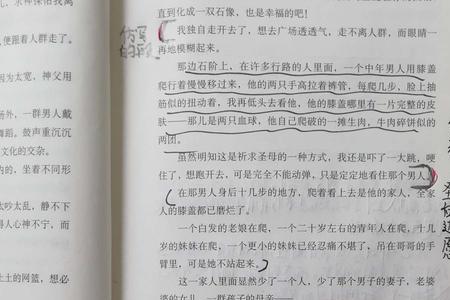 求神保佑我离
便跟着人群走了。
因为太宽,神父用
场外,一群男人戴
舞蹈。鼓声重沉沉
文化的交杂。
内的,坐着不同形
太吵太乱,静不下
得人心神不宁,而
土土的网篮,想必
直到化成一双石像,也是幸福的吧!
仿写
的段
我独自走开去了,想去广场透透气,走不离人群,而眼睛一
再地模糊起来。
那边石阶上,在许多行路的人里面,一个中年男人用膝盖
爬行着慢慢移过来,他的两只手高拉着裤管,每爬几步,脸上抽
筋似的扭动着,我再低头去看他,他的膝盖哪里有一片完整的皮
肤——那儿是两只血球,他自己爬破的一摊生肉,牛肉碎饼似的
两团。
虽然明知这是祈求圣母的一种方式,我还是吓了一大跳,哽
住了,想跑开去,可是完全不能动弹,只是定定地看住那个男人。
在那男人身后十几步的地方,爬着看上去是他的家人,全家
人的膝盖都已磨烂了。
一个白发的老娘在爬,一个二十岁左右的青年人在爬,十几
岁的妹妹在爬,一个更小的妹妹已经忍痛不堪了,吊在哥哥的手
臂里,可是她不站起来。
这一家人里面显然少了一个人,少了那个男子的妻子,老婆
婆的女儿,一群孩子的母亲——